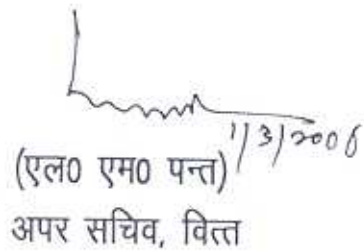 1/3/2006
(एल0 एम0 पन्त)
अपर सचिव, वित्त